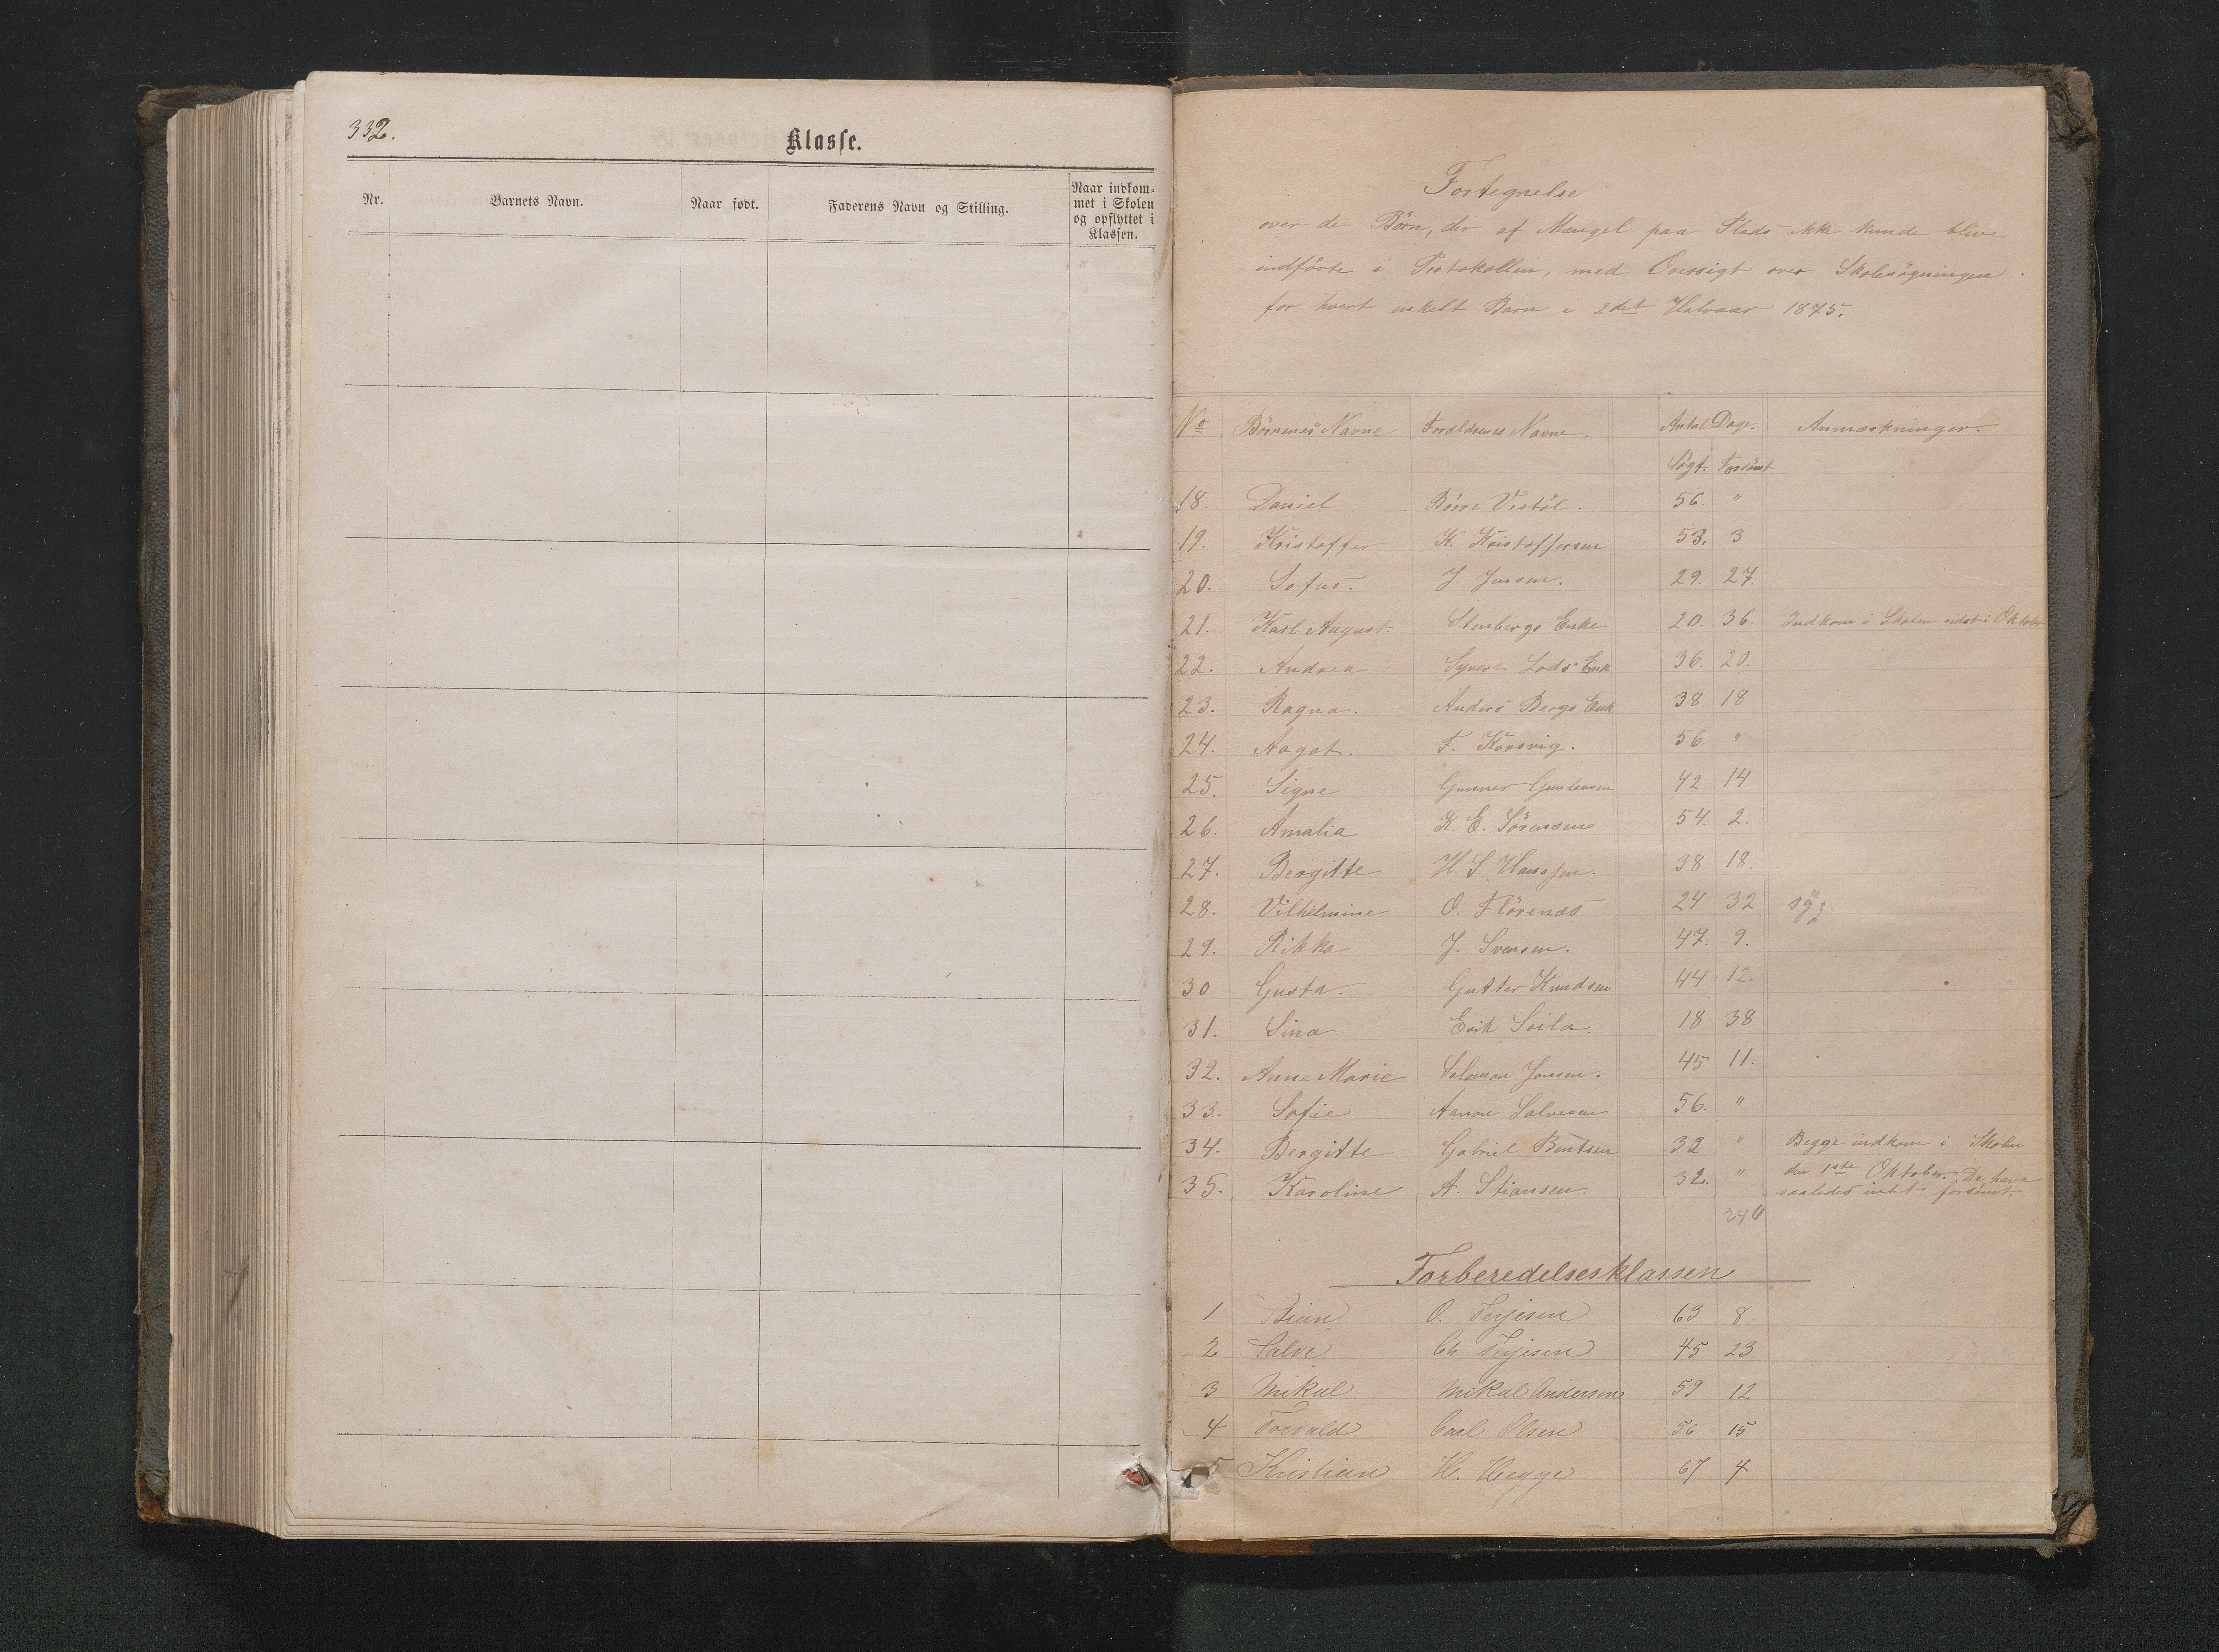 332.
Klasse.
Nr. Barnets Navn. Naar født. Faderens Navn og Stilling. Naar indkom=
met i Skolen
og opflyttet i
Klassen.
Fortegnelse
over de Börn, der af Mangel paa Plads ikke kunde blive
indförte i Protokollen, med Oversigt over Skolesögningen
for hvert enkelt Barn i 2det Halvaar 1875.
No Börnenes Navne Forældrenes Navne. Antal Dage. Anmærkninger.
Sögt. Forsömt
18. Daniel Börre Vestöl. 56. "
19. Kristoffer K. Kristoffersen 53. 3
20. Sofus. J. Jensen. 29. 27.
21. Karl August. Stenbergs Enke 20. 36. Indkom i Skolen sidst i Oktober
22. Andrea Lods Enk 36. 20.
23. Ragna. Anders Bergs Enk 38 18
24. Aagot. F. Korsvig. 56. "
25. Signe Gunner 42. 14
26. Amalia K. E. Sörensen 54. 2.
27. Bergitte H. S. Hanssen. 38 18.
28. Vilhelmine O. Flörenæs 24 32 syg
29. Rikka J. Svensen. 47. 9.
30 Gusta. Gutter Knudsen 44 12.
31. Sina Erik 18 38
32. Anne Marie Salomon Jensen. 45 11.
33. Sofie Aanon Salvesen 56. "
34. Bergitte Gabriel Bentsen 32 " Begge indkom i Skolen
35. Karoline A. Stiansen. 32. " den 1ste Oktober. De have
saaledes intet forsömt.
240
Forberedelsesklassen
1 O. Terjesen 63 8
2 Salve Ch. Terjesen 45 23
3 Mikal Mikal Andersen 59 12
4 Torvald Carl Olsen 56 15
5 Kristian H. Hegge 67 4